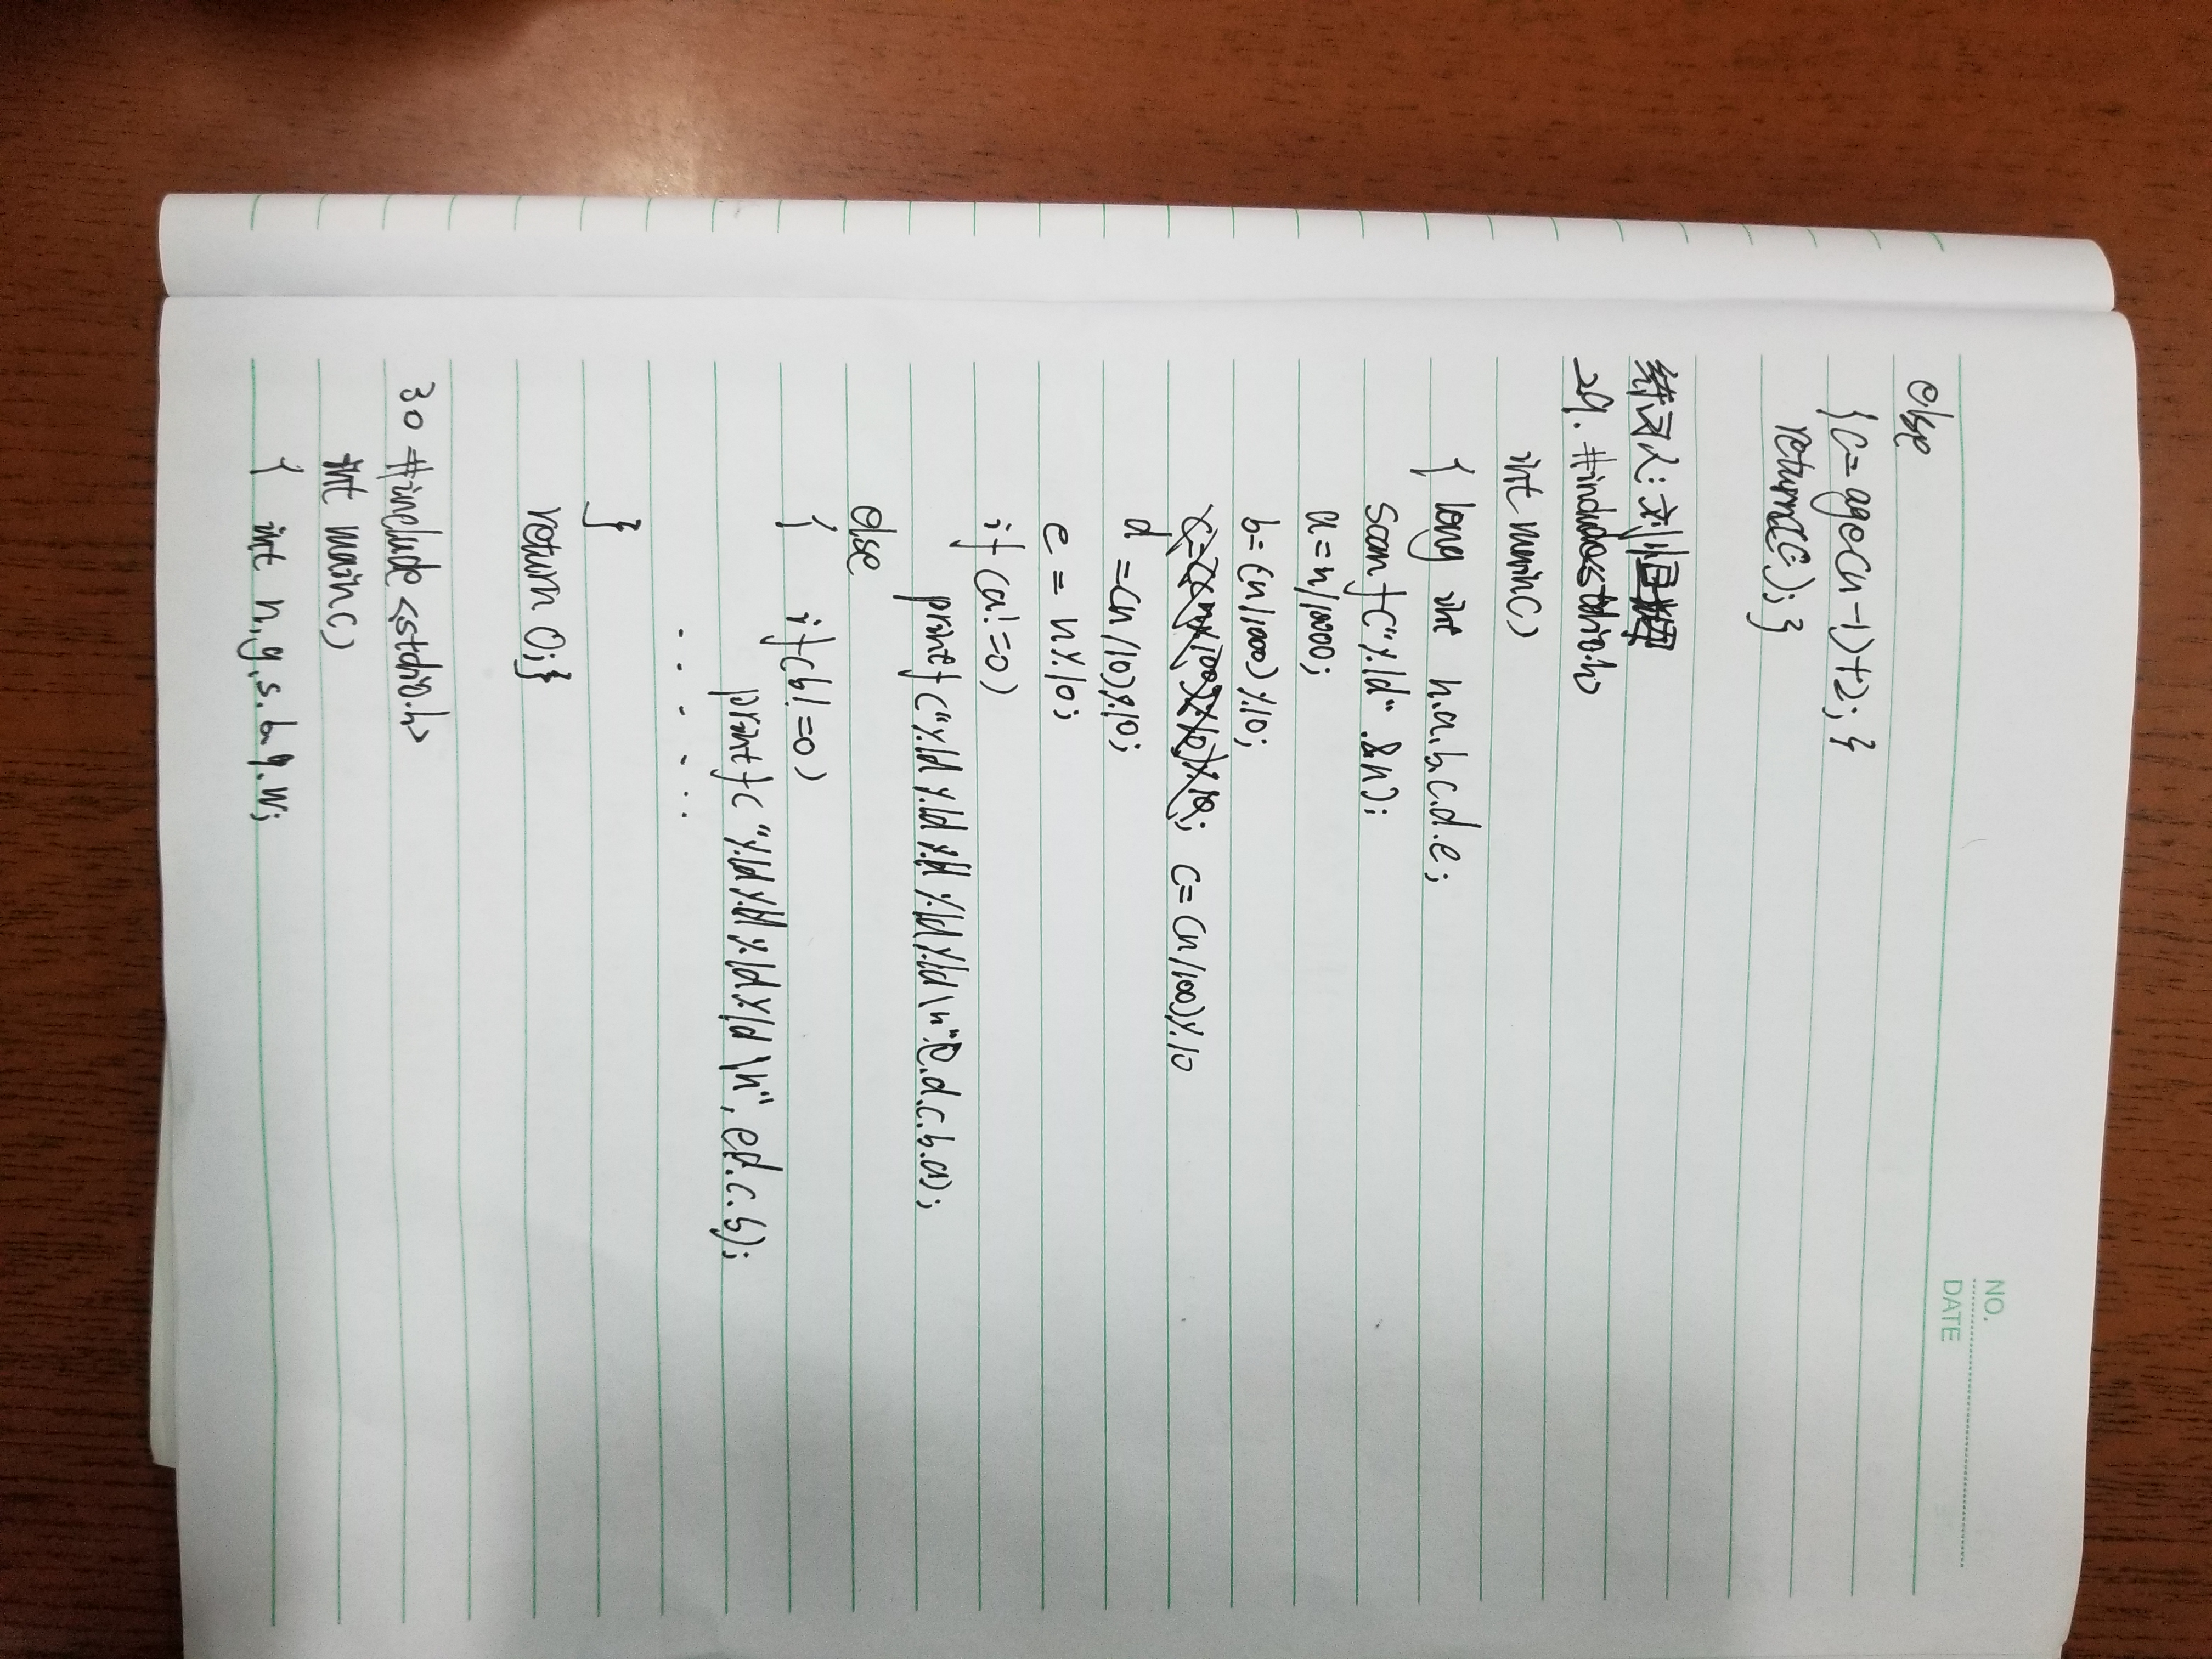 NO.
DATE
else
{c=age(n-1)+2;}
return(c);}
练习人:刘恒
29. #include<stdio.h>
int main()
{ long int n,a,b,c,d,e;
scanf("%ld",&n);
a=n/10000;
b=(n/1000)%10;
c=(n/100)%10
d=(n/10)%10;
e=n%10;
if(a!=0)
printf("%ld %ld %ld %ld %ld\n",e,d,c,b,a);
else
{ if(b!=0)
printf("%ld %ld %ld %ld\n",e,d,c,b);
......
}
return 0;}
30 #include<stdio.h>
int main()
{ int n,g,s,b,q,w;